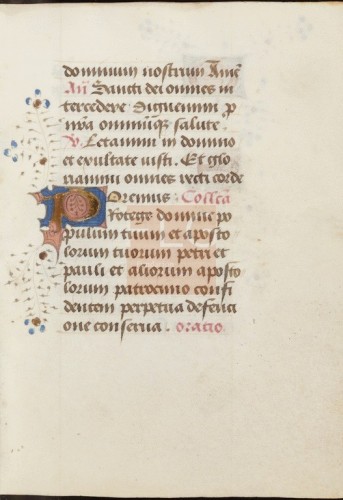 dominum nostrum Amē
Añ Sancti dei omnes in
tercedere dignemini p
nr̄a omniūq; salute
V Letamini in domino
et exultate iusti. Et glo
riamini omnes recti corde
Oremus. Collcā
Protege domine po
pulum tuum et aposto
lorum tuorum petri et
pauli et aliorum aposto
lorum patrocinio confi
dentem perpetua defenci
one conserua. oratio.